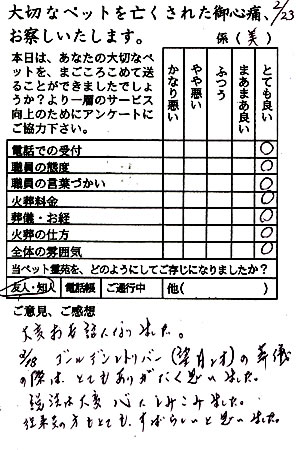 大切なペットを亡くされた御心痛、2/23
お察しいたします。 係(美)
本日は、あなたの大切なペ
ットを、まごころこめて送
ることができましたでしょ
うか?より一層のサービス
向上のためにアンケートに
ご協力下さい。
かなり悪い やや悪い ふつう まあまあ良い とても良い
電話での受付 ○
職員の態度 ○
職員の言葉づかい ○
火葬料金 ○
葬儀・お経 ○
火葬の仕方 ○
全体の雰囲気 ○
当ペット霊苑を、どのようにしてご存じになりましたか?
友人・知人 電話帳 ご通行中 他( )
ご意見、ご感想
大変お世話になりました。
2/18 ゴールデンレトリバー( の葬儀
の際は、とてもありがたく思いました。
説法は大変心にしみこみました。
従業員の方もとても、すばらしいと思いました。